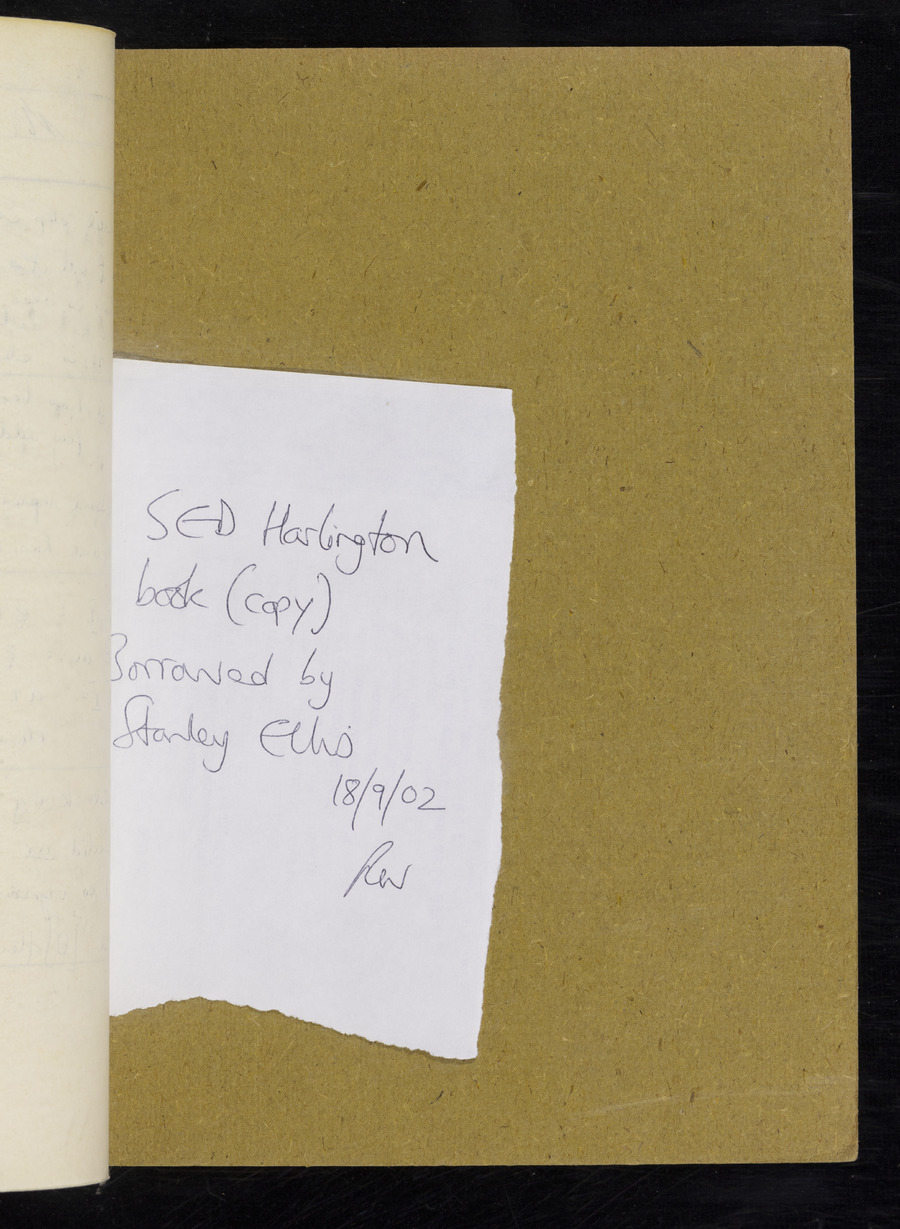 SED Harlington
book (copy)
Borrowed by
Stanley Ellis
18/9/02